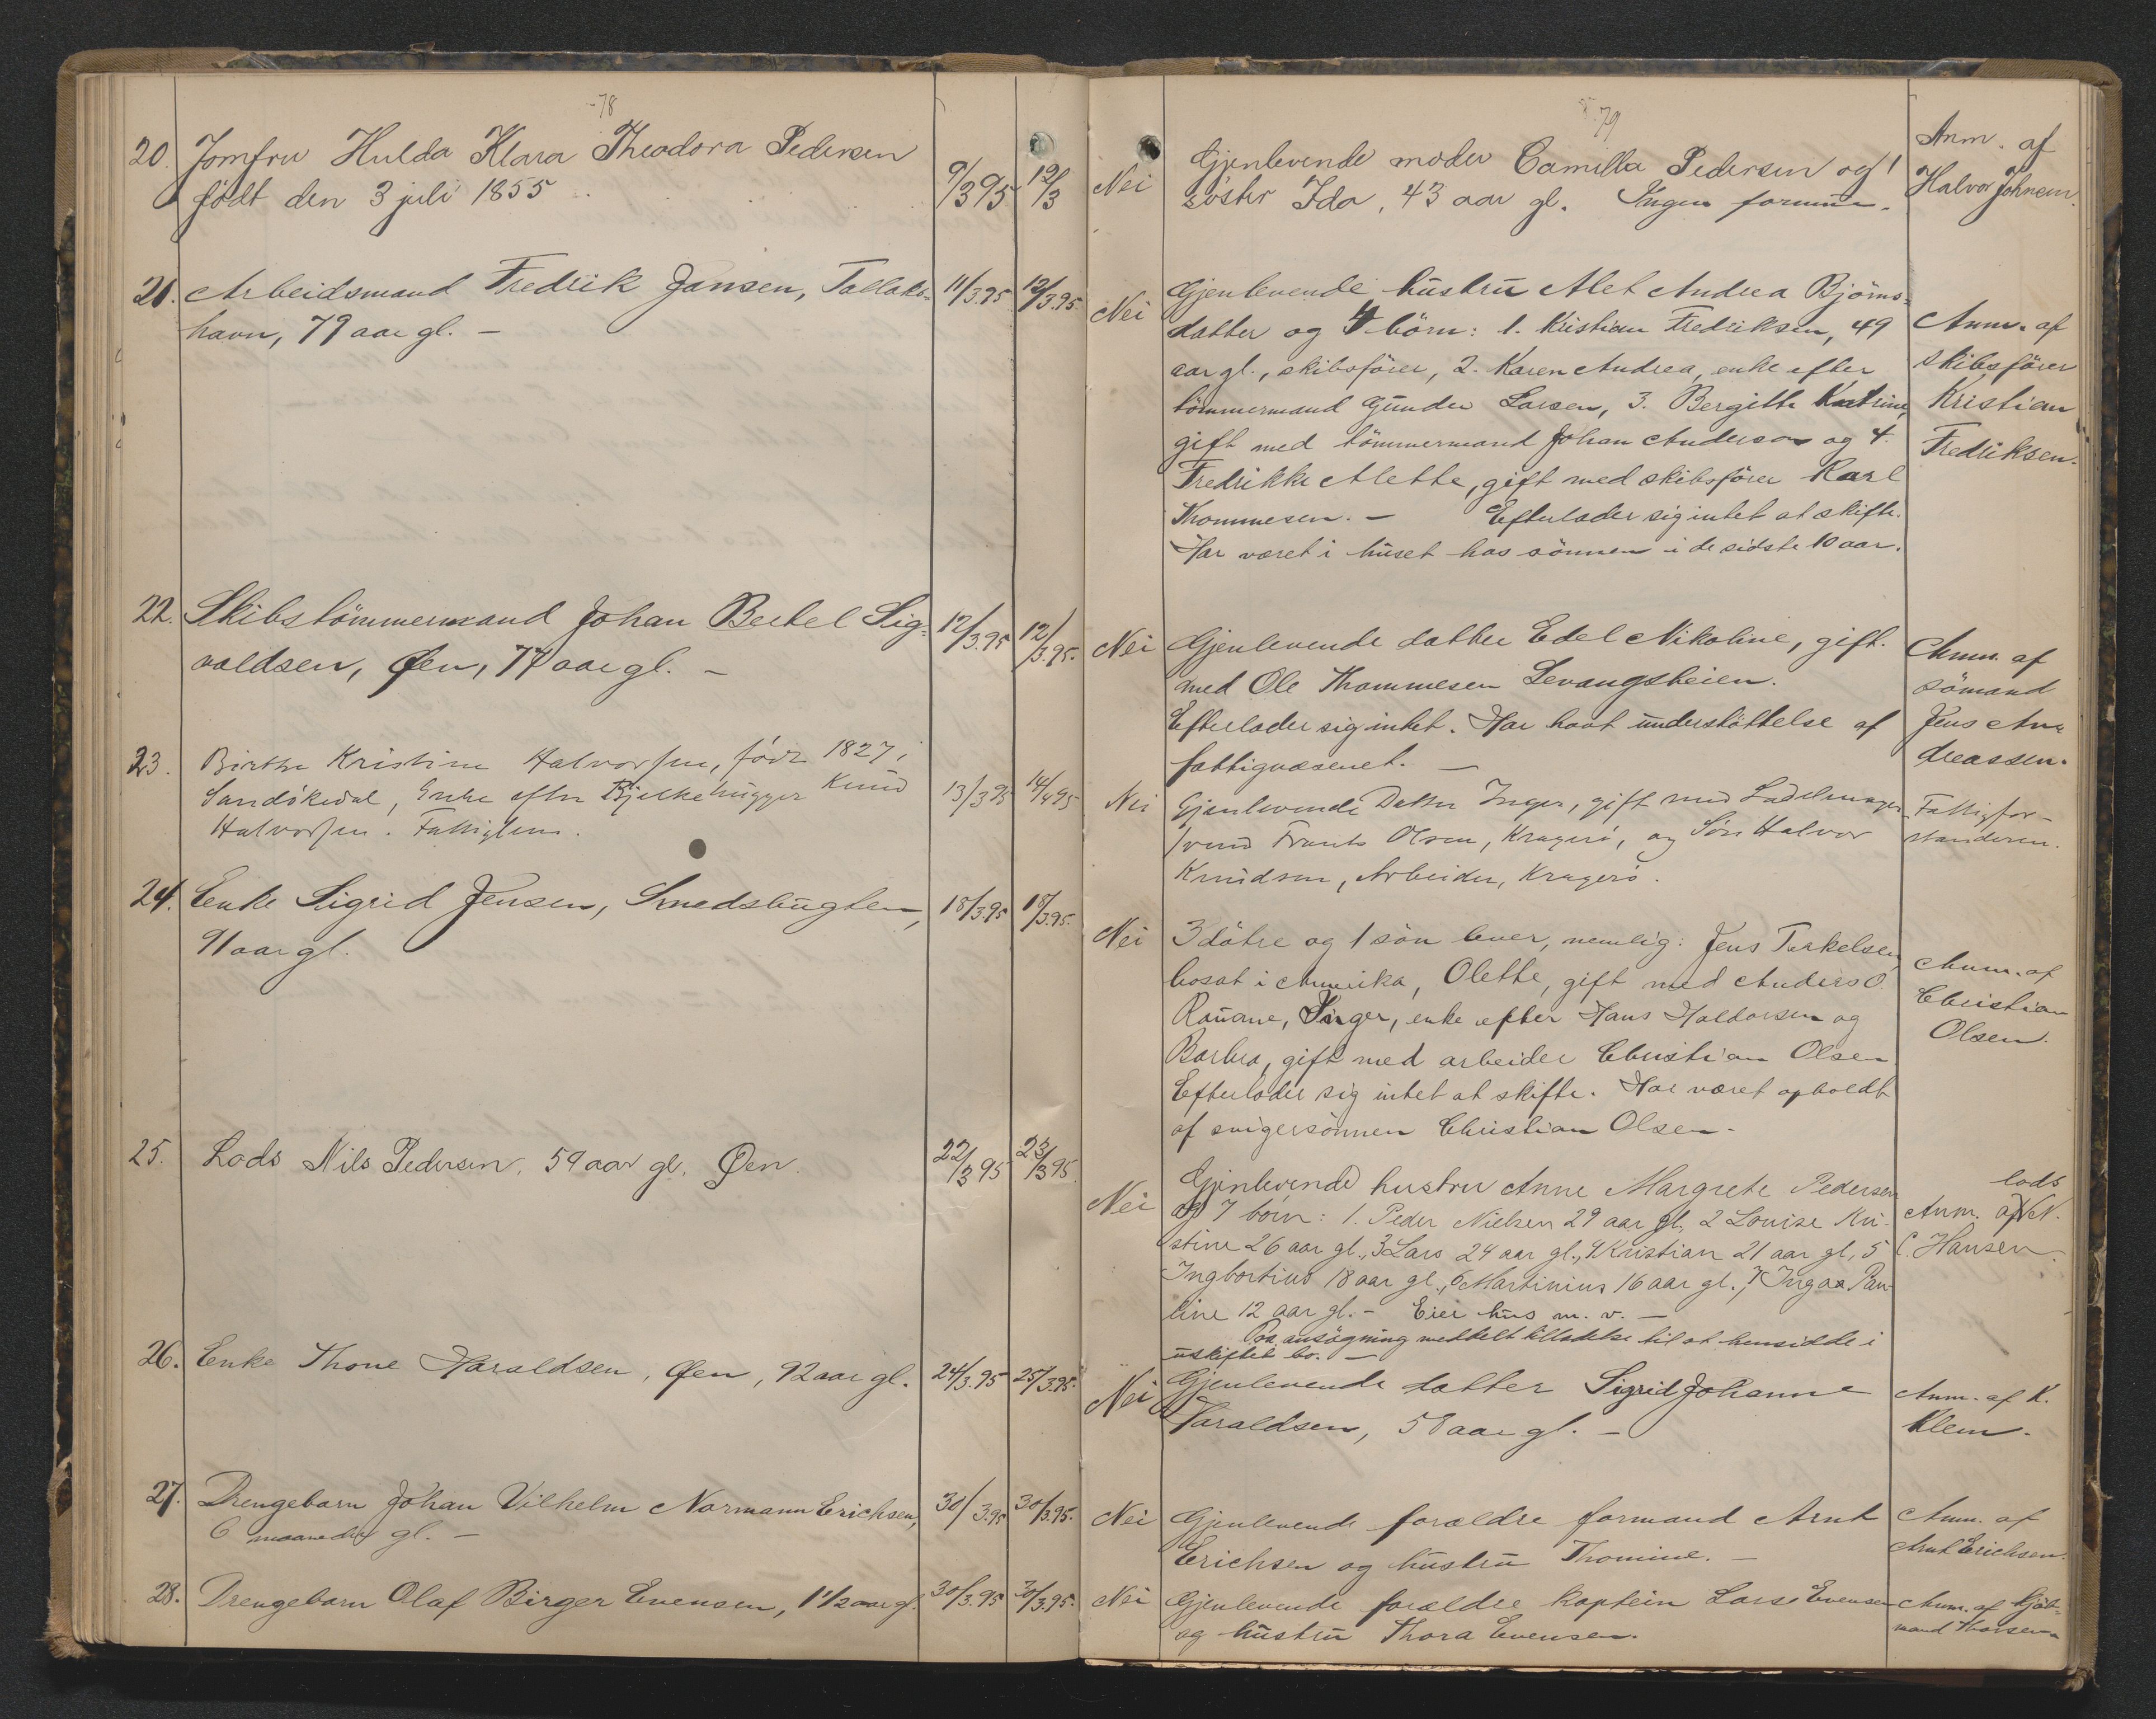 78
20. Jomfru Hulda Klara Theodora Pedersen
födt den 3 juli 1855
9/3 95 12/3
21. Arbeidsmand Fredrik Jansen, Tallaks-
havn, 79 aar gl. –
11/3.95 12/3.95
22. Skibstömmermand Johan Bertel Sig-
valdsen, Øen, 77 aar gl. –
12/3.95 12/3.95.
23. Birthe Kristine Halvorsen, födt 1827 i
Sandökedal, Enke efter Bjelkehugger Knud
Halvorsen. Fattiglem.
13/3 95 14/4 95
24. Enke Sigrid Jensen, Smedsbugten,
91 aar gl.
18/3.95 18/3.95.
25. Lods Nils Pedersen, 59 aar gl. Øen.
22/3 95 23/3 95.
26. Enke Thone Haraldsen, Øen, 92 aar gl.
24/3.95 25/3.95.
27. Drengebarn Johan Vilhelm Normann Erichsen,
6 maaneder gl. –
30/3.95 30/3.95.
28. Drengebarn Olaf Birger Evensen, 1 1/2 aar gl.
30/3.95 30/3.95.
79
Nei Gjenlevende moder Camilla Pedersen og 1
söster Ida, 43 aar gl. Ingen formue.
Anm. af
Halvor Johnsen.
Nei Gjenlevende hustru Alet Andrea Björns-
datter og 4 börn: 1. Kristian Fredriksen, 49
aar gl., skibsförer, 2. Karen Andrea, enke efter
tömmermand Gunder Larsen, 3. Bergitte Katrine,
gift med tömmermand Johan Anderson og 4.
Fredrikke Alette, gift med skibsförer Karl
Thommesen. – Efterlader sig intet at skifte.
Har været i huset hos sönnen i de sidste 10 aar.
Anm. af
skibsförer
Kristian
Fredriksen.
Nei Gjenlevende datter Edel Nikoline, gift
med Ole Thommesen Levangsheien.
Efterlader sig intet. Har havt understöttelse af
fattigvæsenet. –
Anm. af
sömand
Jens An-
dreassen.
Nei Gjenlevende Datter Inger, gift med
Svend Frants Olsen, Kragerö, og Sön Halvor
Knudsen, Arbeider, Kragerö.
Fattigfor-
standeren.
Nei 3 dötre og 1 sön lever, nemlig: Jens Terkelsen,
bosat i Amerika, Olette, gift med Anders O.
Rauane, Inger, enke efter Hans Haldorsen og
Barbra, gift med arbeider Christian Olsen
Efterlader sig intet at skifte. Har været opholdt
af svigersönnen Christian Olsen.
Anm. af
Christian
Olsen.
Nei Gjenlevende hustru Anne Margrete Pedersen
og 7 börn: 1. Peder Nielsen 29 aar gl, 2 Louise Kri-
stine 26 aar gl., 3 Lars 24 aar gl., 4 Kristian 21 aar gl, 5
Ingbortius 18 aar gl., 6 Martinius 16 aar gl., 7 Ingaa Pau-
line 12 aar gl. – Eier hus m. v. –
Paa ansögning meddelt tilladelse til at hensidde i
uskiftet bo. –
lods
Anm. af N.
C. Hansen.
Nei Gjenlevende datter Sigrid Johanne
Haraldsen, 58 aar gl. –
Anm. af K.
Klem.
Nei Gjenlevende forældre formand Arnt
Erichsen og hustru Thomine. –
Anm. af
Arnt Erichsen.
Nei Gjenlevende forældre kaptein Lars Evensen
og hustru Thora Evensen.
Anm. af Kjöb-
mand Thorsen